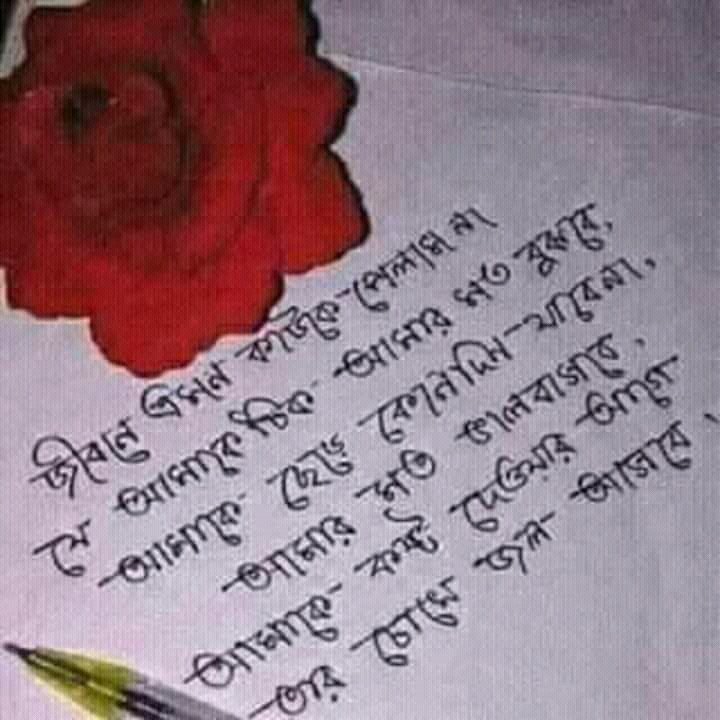 জীবনে এমন কাউকে পেলাম না
যে আমাকে ঠিক আমার মত বুঝবে,
আমাকে ছেড়ে কোনোদিন যাবেনা,
আমার মত ভালবাসবে,
আমাকে কষ্ট দেওয়ার আগে
তার চোখে জল আসবে,